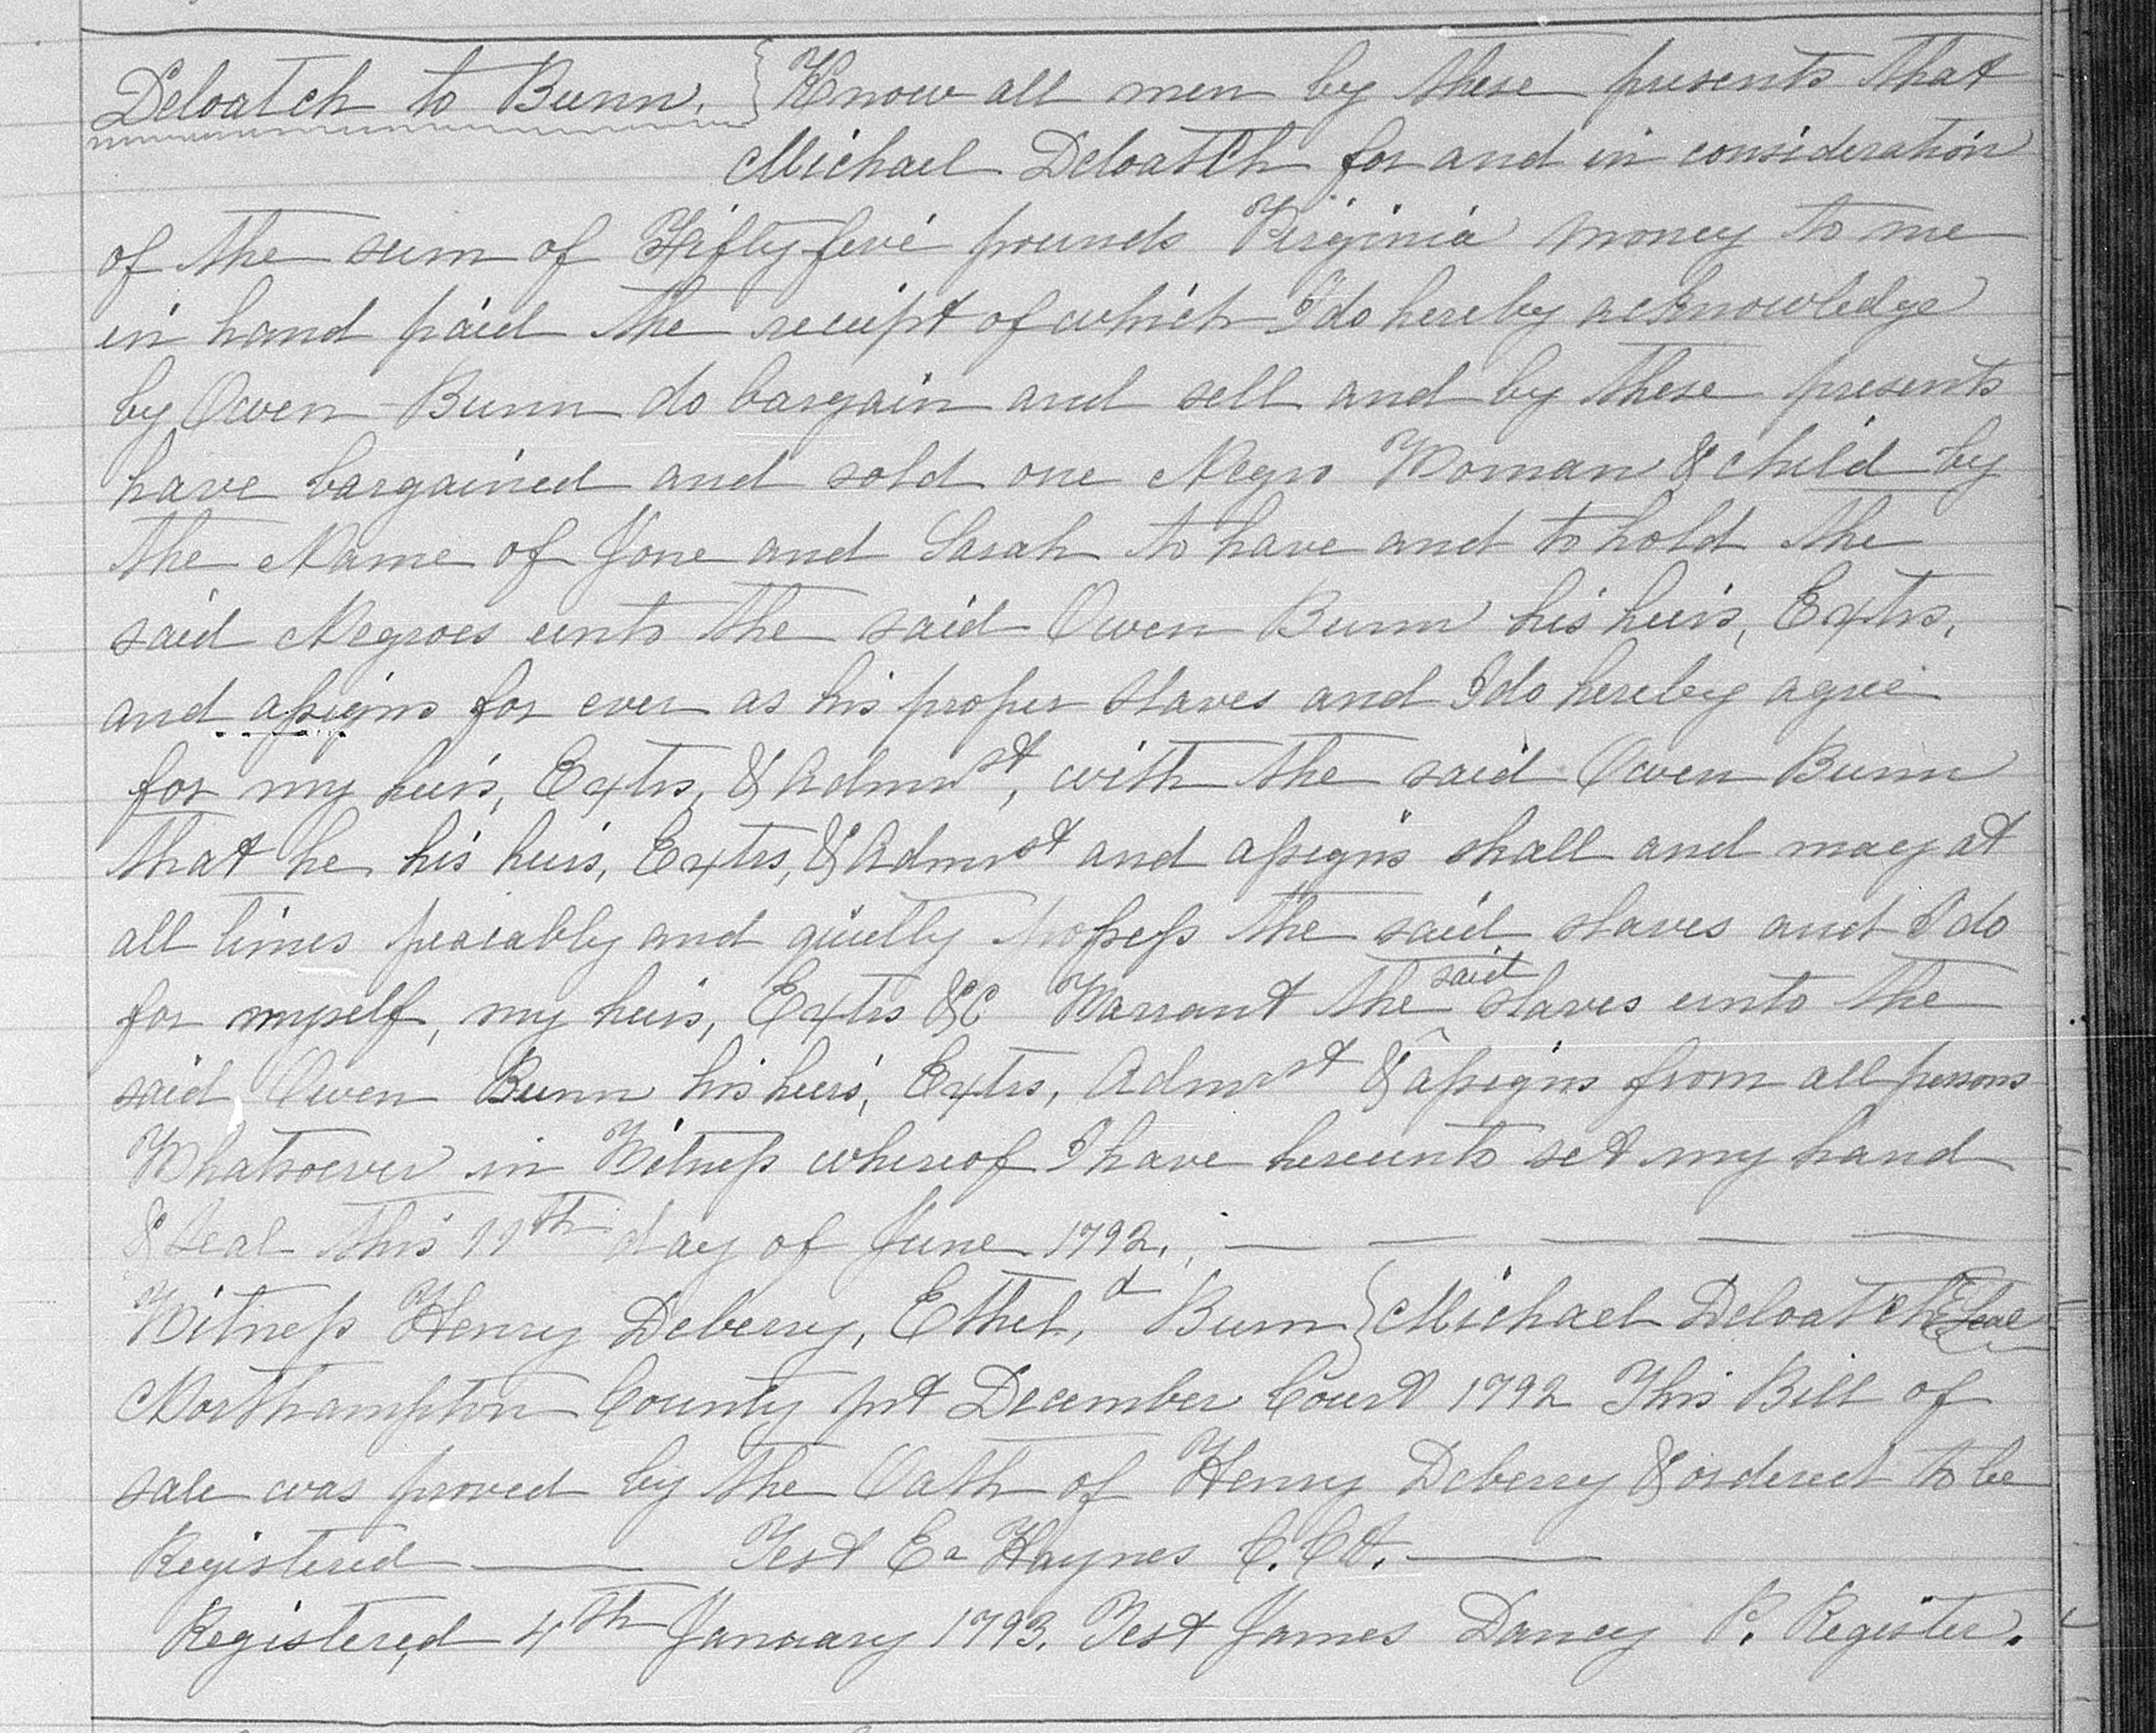 Deloatch to Bunn. } Know all men by these presents that
Michael Deloatch for and in consideration
of the sum of Fifty five pounds Virginia money to me
in hand paid the receipt of which I do hereby acknowledge
by Owen Bunn do bargain and sell and by these presents
have bargained and sold one Negro Woman & child by
the Name of Jone and Sarah to have and to hold the
said Negroes unto the said Owen Bunn his heirs, Extrs,
and assigns for ever as his proper slaves and I do hereby agree
for my heirs, Extrs, & Admrst, with the said Owen Bunn
that he his heirs, Extrs, & Admrst and assigns shall and may at
all times peacably and quietly possess the said slaves and I do
for myself, my heirs, Extrs &C Warrant the said slaves unto the
said Owen Bunn his heirs, Extrs, Admrst & assigns from all persons
Whatsoever in Witness whereof I have hereunto set my hand
& Seal this 11th day of June 1792.
Witness Henry Deberry, Ethel,d Bunn } Michael Deloatch Seal
Northampton County pst December Court 1792 This Bill of
sale was proved by the Oath of Henry Deberry & ordered to be
Registered Test Ea Haynes C. Ct.
Registered 4th January 1793. Test James Dancy P. Register.